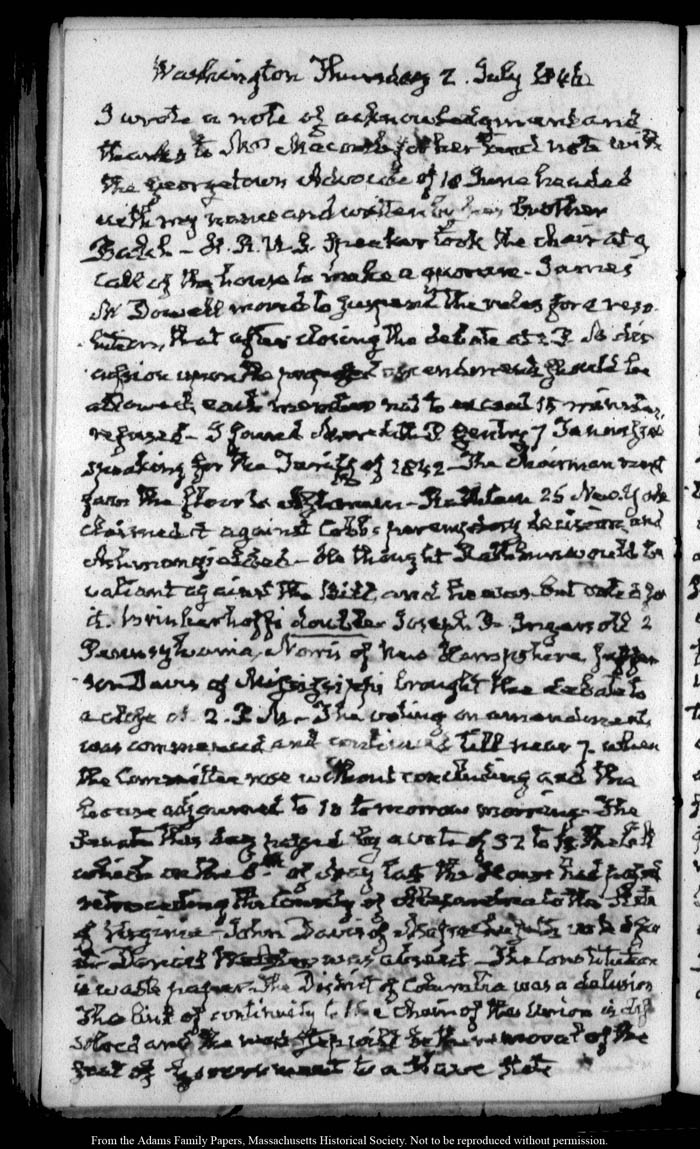 Washington Thursday 2. July 1846
I wrote a note of acknowledgment and
thanks to Mrs for her kind note with
the Georgetown Advocate of 18 June headed
with my name and written by her brother
H. R. U. S. Speaker took the chair at 9
call of the house to make a quorum. James
McDowell moved to suspend the rules for a reso-
lution, that after closing the debate at 2. P. M. dis-
cussion upon the proposed amendments should be
allowed, each member not to exceed 15 minutes,
refused. I found Meredith P. Gentry 7 Tennessee
speaking for the Tariff of 1842. The Chairman
the floor to Ashmun. Rathbun 25 New York
claimed it against Cobb's peremptory decision, and
Ashmun yielded. He thought Rathbun would be
valiant against the Bill, and he was. but voted for
it. Brinkerhoff's doubter Joseph R. Ingersoll 2
Pennsylvania, Norris of New Hampshire, Jeffer-
son Davis of Mississippi brought the debate to
a close at 2. P. M. The voting on amendments
was commenced and continued till near 7. when
the Committee rose without concluding and the
house adjourned to 10 to morrow morning. The
Senate this day passed by a vote of 32 to 14 the bill
which on the 8th of May last the House had passed
retroceding the County of Alexandria to the State
of Virginia. John Davis of Massachusetts voted for
it. Daniel Webster was absent. The Constitution
is waste paper. The District of Columbia was a delusion
The link of continuity to the chain of the Union is dis-
solved and the next step will be the removal of the
Seat of Government to a Slave State
From the Adams Family Papers, Massachusetts Historical Society. Not to be reproduced without permission.